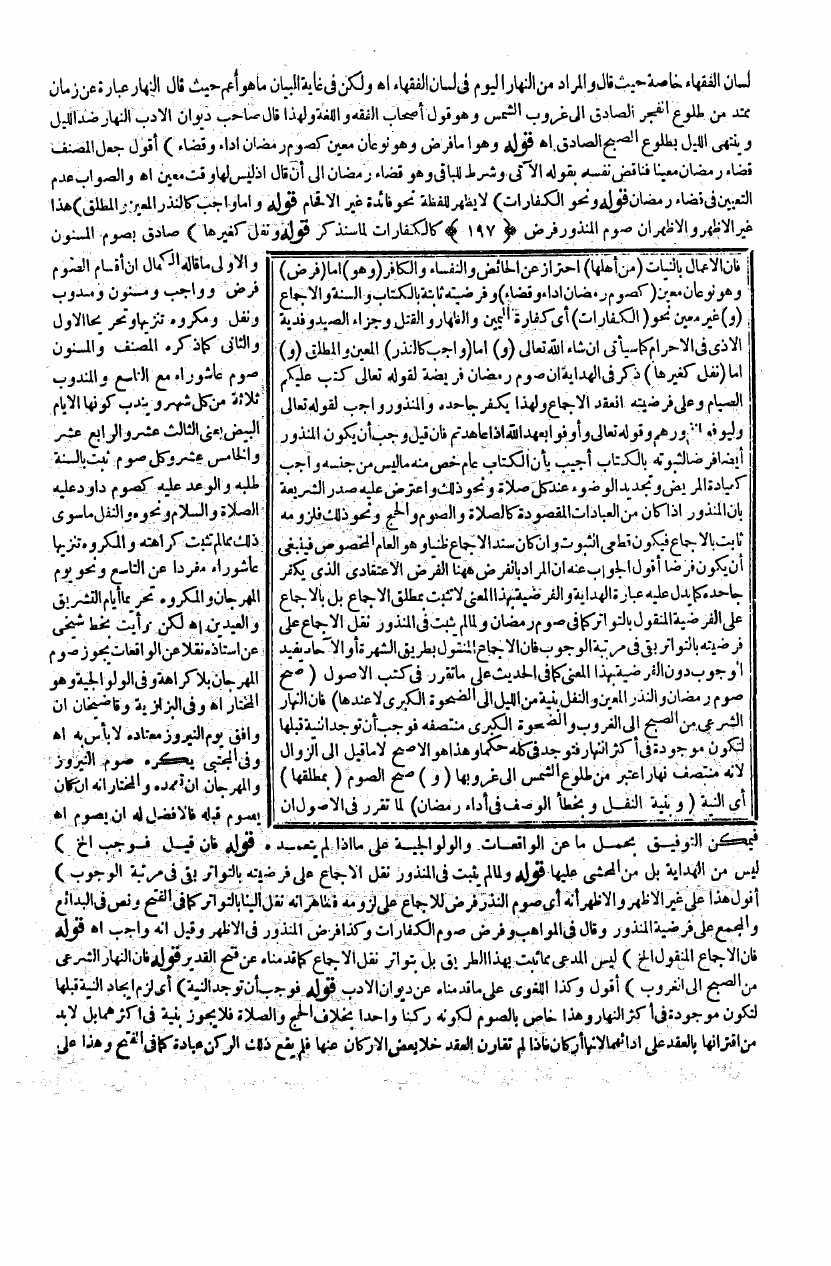 لسان الفقهاء خاصة حيث قال والمراد من النهار اليوم فى لسان الفقهاء اه ولكن فى غاية البيان ماهو أعم حيث قال النهار عبارة عن زمان
ممتد من طلوع الفجر الصادق الى غروب الشمس وهو قول أصحاب الفقه واللغة ولهذا قال صاحب ديوان الادب النهار ضد الليل
وينتهى الليل بطلوع الصبح الصادق اه قوله وهو اما فرض وهو نوعان معين كصوم رمضان اداء وقضاء ) أقول جعل المصنف
قضاء رمضان معينا فناقض نفسه بقوله الآتى وشرط للباقى وهو قضاء رمضان الى أن قال اذ ليس لها وقت معين اه والصواب عدم
التعيين فى قضاء رمضان قوله ونحو الكفارات ) لا يظهر للفظة نحو فائدة غير الاقحام قوله واما واجب كالنذر المعين والمطلق ) هذا
غير الاظهر والاظهر ان صوم المنذور فرض ﴿ ١٩٧ ﴾ كالكفارات لما سنذكر قوله ونفل كغيرها ) صادق بصوم المسنون
فان الاعمال بالنيات (من أهلها) احتراز عن الحائض والنفساء والكافر (وهو) اما (فرض)
وهو نوعان معين (كصوم رمضان اداء وقضاء) وفرضيته ثابتة بالكتاب والسنة والاجماع
(و) غير معين نحو (الكفارات) أى كفارة اليمين والظهار والقتل وجزاء الصيد وفدية
الاذى فى الاحرام كما سيأتى ان شاء الله تعالى (و) اما (واجب كالنذر) المعين والمطلق (و)
اما (نفل كغيرها) ذكر فى الهداية ان صوم رمضان فريضة لقوله تعالى كتب عليكم
الصيام وعلى فرضيته انعقد الاجماع ولهذا يكفر جاحده والمنذور واجب لقوله تعالى
وليوفوا نذورهم وقوله تعالى وأوفوا بعهد الله اذا عاهدتم فان قيل وجب أن يكون المنذور
أيضا فرضا لثبوته بالكتاب أجيب بأن الكتاب عام خص منه ما ليس من جنسه واجب
كعيادة المريض وتجديد الوضوء عند كل صلاة ونحو ذلك واعترض عليه صدر الشريعة
بان المنذور اذا كان من العبادات المقصودة كالصلاة والصوم والحج ونحو ذلك فلزومه
ثابت بالاجماع فيكون قطعى الثبوت وان كان سند الاجماع ظنيا وهو العام المخصوص فينبغى
أن يكون فرضا أقول الجواب عنه ان المراد بالفرض ههنا الفرض الاعتقادى الذى يكفر
جاحده كما يدل عليه عبارة الهداية والفرضية بهذا المعنى لا تثبت بمطلق الاجماع بل بالاجماع
على الفرضية المنقول بالتواتر كما فى صوم رمضان ولما لم يثبت فى المنذور نقل الاجماع على
فرضيته بالتواتر بقى فى مرتبة الوجوب فان الاجماع المنقول بطريق الشهرة أو الآحاد يفيد
الوجوب دون الفرضية بهذا المعنى كما فى الحديث على ما تقرر فى كتب الاصول ( صح
صوم رمضان والنذر المعين والنفل بنية من الليل الى الضحوة الكبرى لا عندها) فان النهار
الشرعى من الصبح الى الغروب والضحوة الكبرى منتصفه فوجب أن توجد النية قبلها
لتكون موجودة فى أكثر النهار فتوجد فى كله حكما وهذا هو الاصح لا ما قيل الى الزوال
لانه منتصف نهار اعتبر من طلوع الشمس الى غروبها ( و ) صح الصوم ( بمطلقها )
أى النية ( وبنية النفل وبخطأ الوصف فى أداء رمضان) لما تقرر فى الاصول ان
والاولى ما قاله الكمال ان أقسام الصوم
فرض وواجب ومسنون ومندوب
ونفل ومكروه تنزيها وتحريما الاول
والثانى كما ذكره المصنف والمسنون
صوم عاشوراء مع التاسع والمندوب
ثلاثة من كل شهر ويندب كونها الايام
البيض يعنى الثالث عشر والرابع عشر
والخامس عشر وكل صوم ثبت بالسنة
طلبه والوعد عليه كصوم داود عليه
الصلاة والسلام ونحوه والنفل ما سوى
ذلك مما لم تثبت كراهته والمكروه تنزيها
عاشوراء مفردا عن التاسع ونحو يوم
المهرجان والمكروه تحريما أيام التشريق
والعيدين اه لكن رأيت بخط شيخى
عن استاذه نقلا عن الواقعات يجوز صوم
المهرجان بلا كراهة وفى الولوالجية وهو
المختار اه وفى البزازية وقاضيخان ان
وافق يوم النيروز معتاده لا بأس به اه
وفى المجتبى يكره صوم النيروز
والمهرجان ان تعمده والمختار انه ان كان
يصوم قبله فالافضل له ان يصوم اه
فيمكن التوفيق بحمل ما عن الواقعات والولوالجية على ما اذا لم يتعمده قوله فان قيل فوجب الخ )
ليس من الهداية بل من المحشى عليها قوله ولما لم يثبت فى المنذور نقل الاجماع على فرضيته بالتواتر بقى فى مرتبة الوجوب )
أقول هذا على غير الاظهر والاظهر أنه أى صوم النذر فرض للاجماع على لزومه فظاهر انه نقل الينا بالتواتر كما فى الفتح ونص فى البدائع
والمجمع على فرضية المنذور وقال فى المواهب وفرض صوم الكفارات وكذا فرض المنذور فى الاظهر وقيل انه واجب اه قوله
فان الاجماع المنقول الخ ) ليس المدعى مما ثبت بهذا الطريق بل بتواتر نقل الاجماع كما قدمناه عن فتح القدير قوله فان النهار الشرعى
من الصبح الى الغروب ) أقول وكذا اللغوى على ما قدمناه عن ديوان الادب قوله فوجب أن توجد النية ) أى لزم ايجاد النية قبلها
لتكون موجودة فى أكثر النهار وهذا خاص بالصوم لكونه ركنا واحدا بخلاف الحج والصلاة فلا يجوز بنية فى اكثرهما بل لابد
من اقترانها بالعقد على ادائهما لانها أركان فاذا لم تقارن العقد خلا بعض الاركان عنها فلم يقع ذلك الركن عبادة كما فى الفتح وهذا على